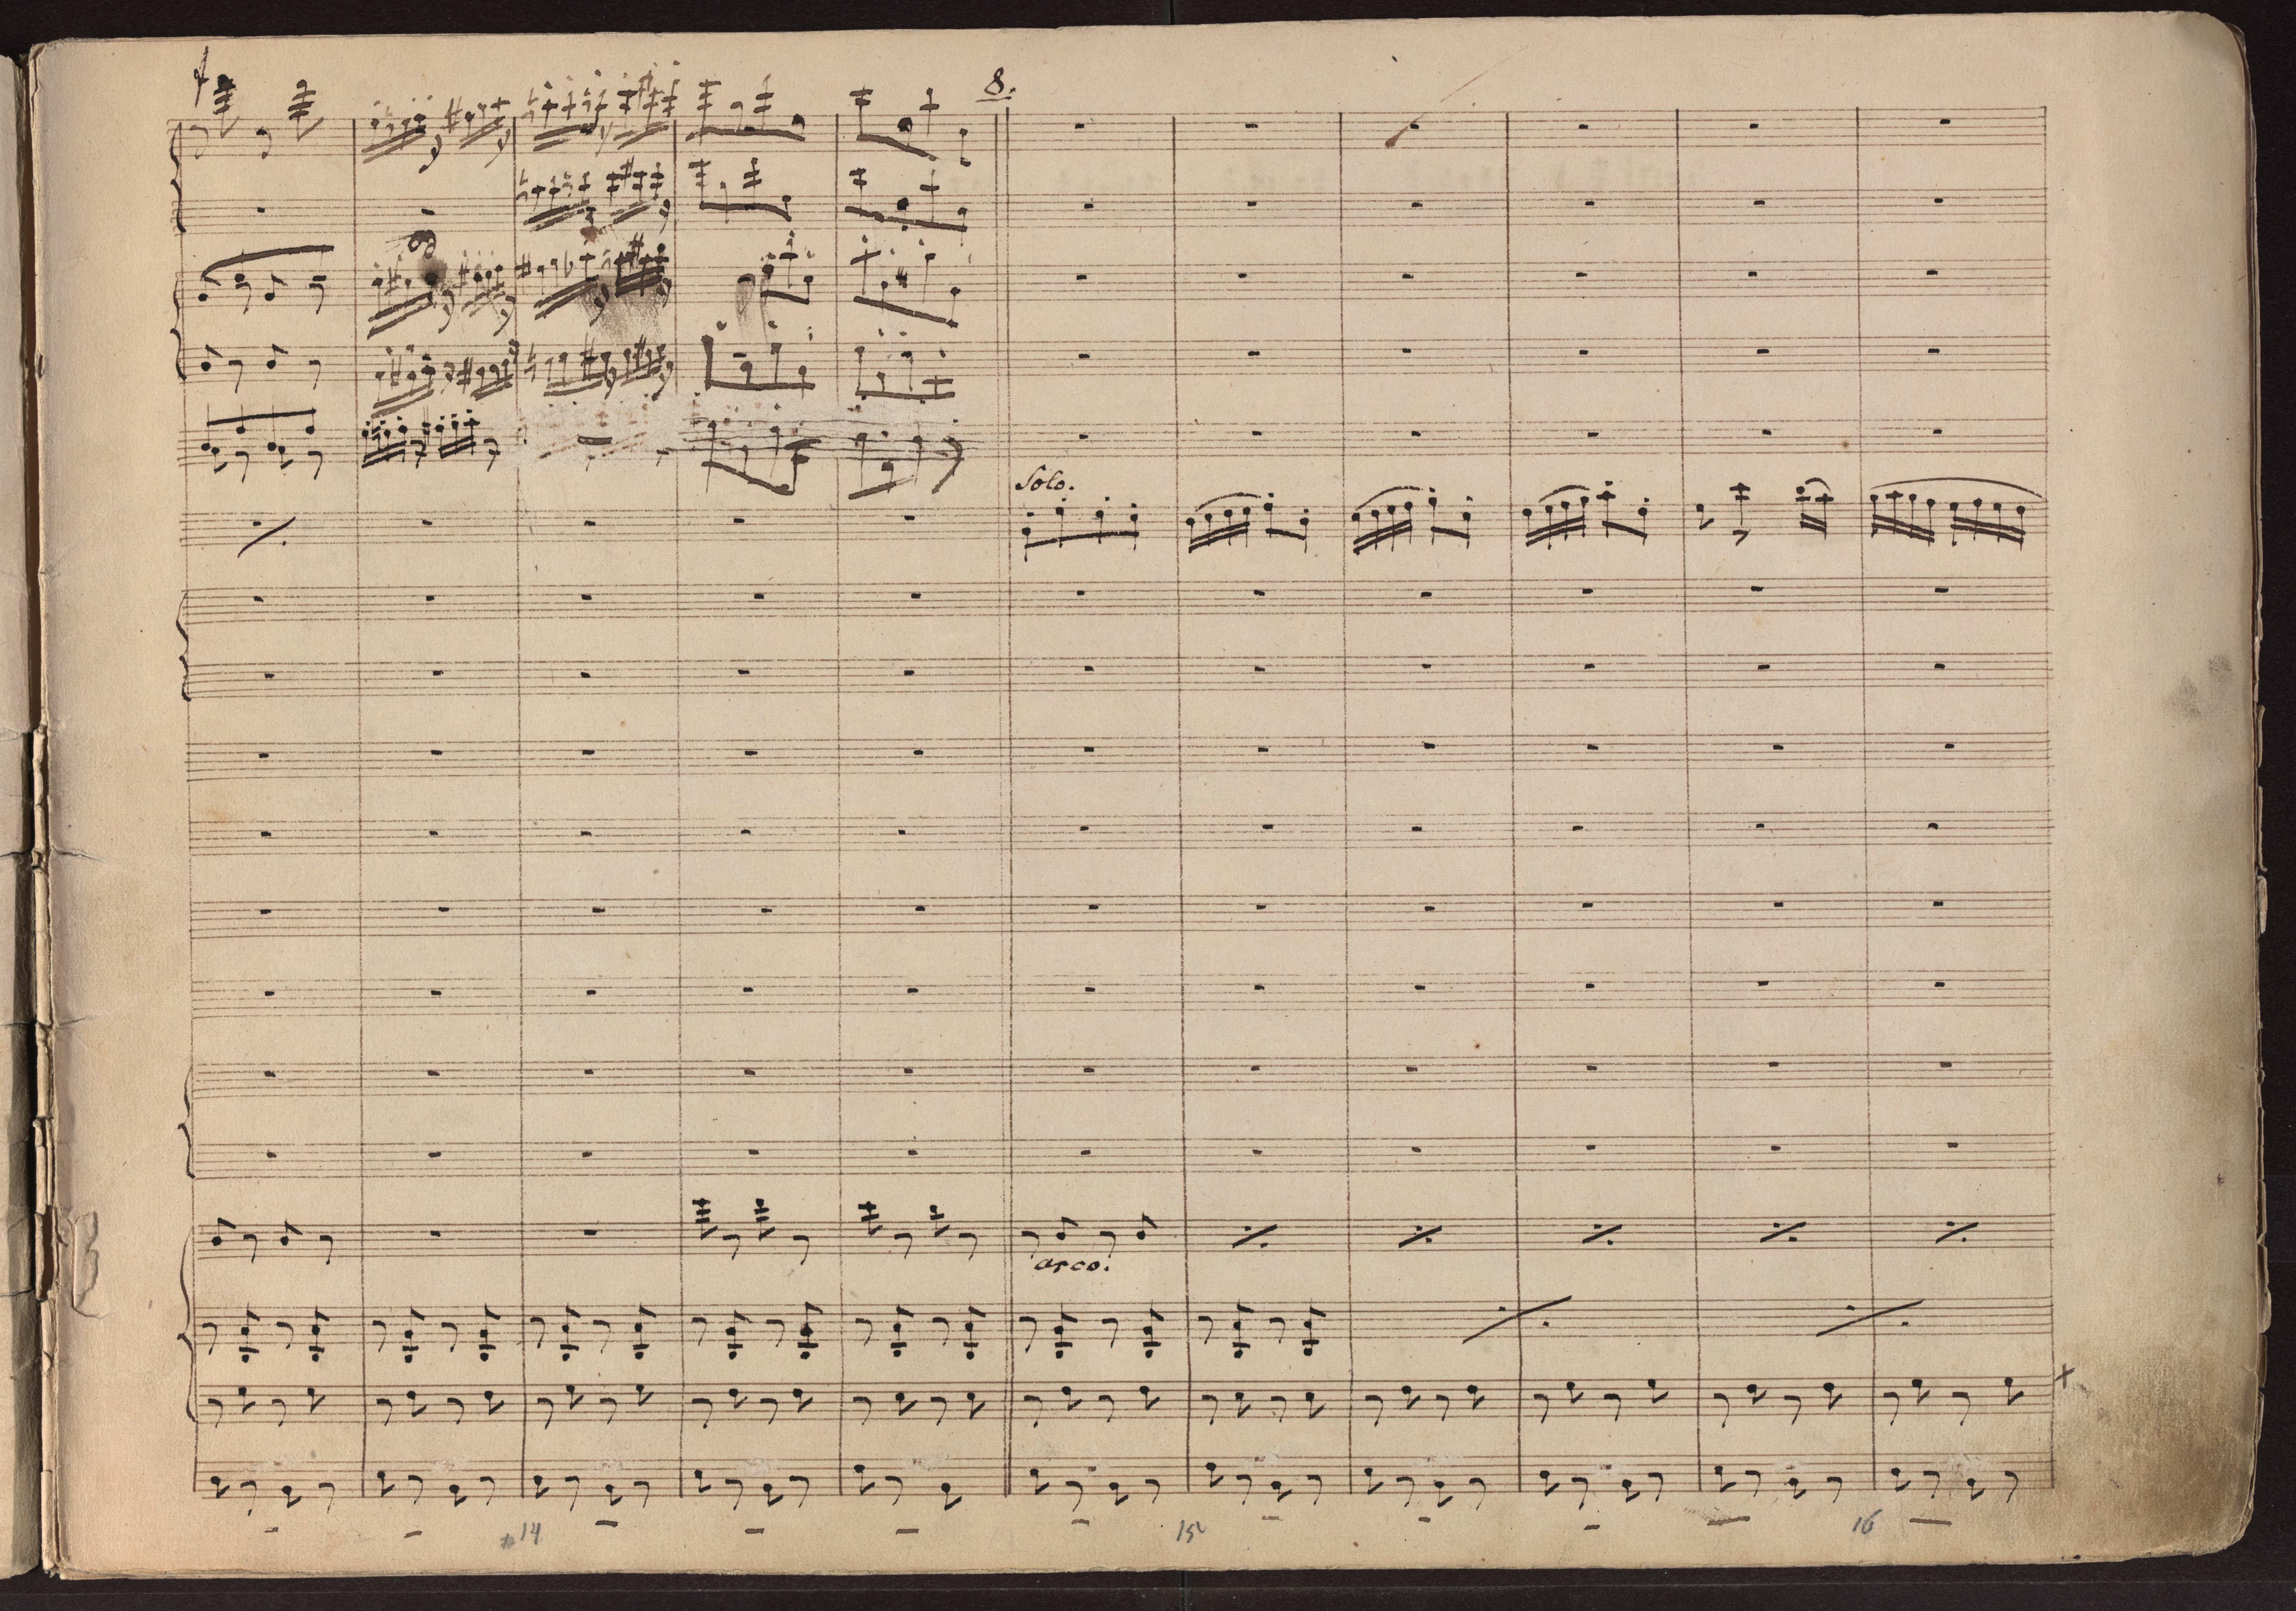 8.
Solo.
arco.
14
15
16